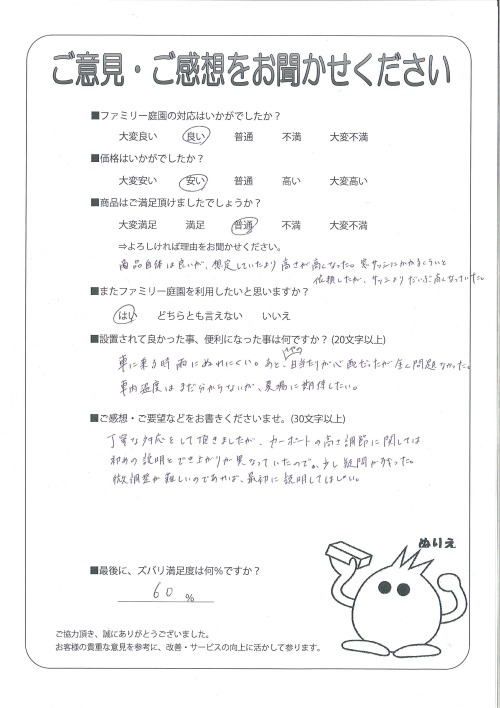 ご意見・ご感想をお聞かせください
■ファミリー庭園の対応はいかがでしたか？
大変良い 良い 普通 不満 大変不満
■価格はいかがでしたか？
大変安い 安い 普通 高い 大変高い
■商品はご満足頂けましたでしょうか？
大変満足 満足 普通 不満 大変不満
⇒よろしければ理由をお聞かせください。
商品自体は良いが、想定していたより高さが高くなった。窓サッシにかかるくらいと
依頼したが、サッシよりだいぶ高くなっていた。
■またファミリー庭園を利用したいと思いますか？
はい どちらとも言えない いいえ
■設置されて良かった事、便利になった事は何ですか？(20文字以上)
車に乗る時雨にぬれにくい。あと、日当たりが心配だったが全く問題なかった。
車内温度はまだ分からないが、夏場に期待したい。
■ご感想・ご要望などをお書きくださいませ。(30文字以上)
丁寧な対応をして頂きましたが、カーポートの高さ調節に関しては
初めの説明とでき上がりが異なっていたので、少し疑問が残った。
微調整が難しいのであれば、最初に説明してほしい。
ぬりえ
■最後に、ズバリ満足度は何％ですか？
60 %
ご協力頂き、誠にありがとうございました。
お客様の貴重な意見を参考に、改善・サービスの向上に活かして参ります。